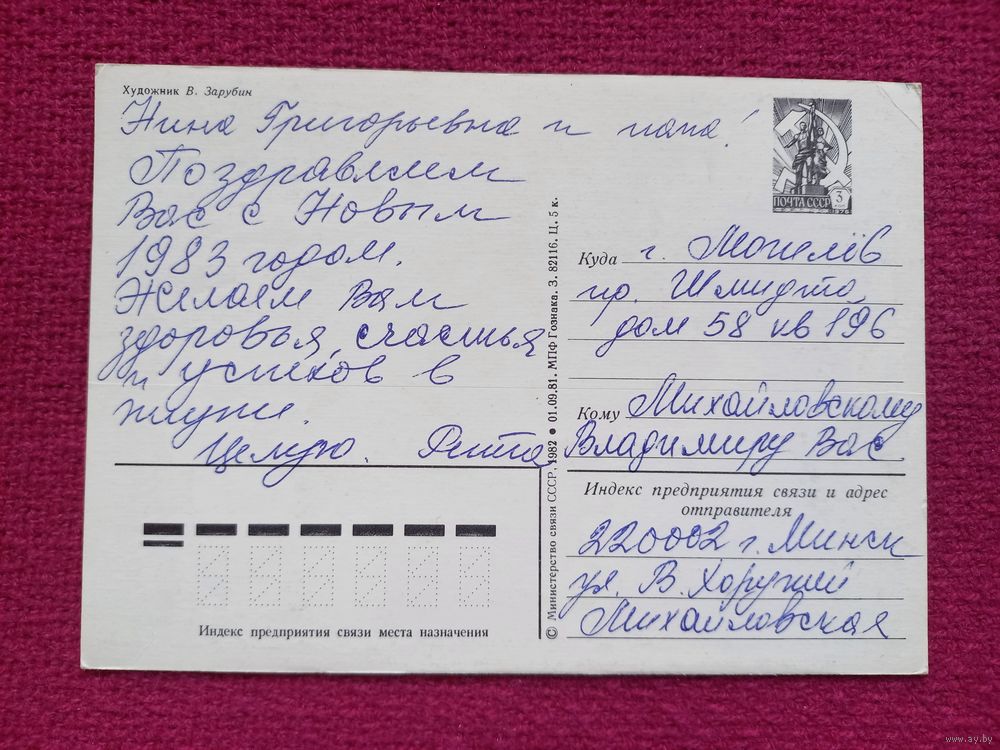 Художник В. Зарубин
Нина Григорьевна и папа!
Поздравляем
Вас с Новым
1983 годом.
Желаем Вам
здоровья, счастья
и успехов в
жизни.
Целую. Рита
Индекс предприятия связи места назначения
© Министерство связи СССР, 1982 ● 01.09.81. МПФ Гознака. З. 82116. Ц. 5 к.
ПОЧТА СССР 3
1976
Куда г. Могилёв
пр. Шмидта,
дом 58 кв 196
Кому Михайловскому
Владимиру Вас
Индекс предприятия связи и адрес
отправителя
220002 г. Минск
ул. В. Хоружей
Михайловская
www.ay.by